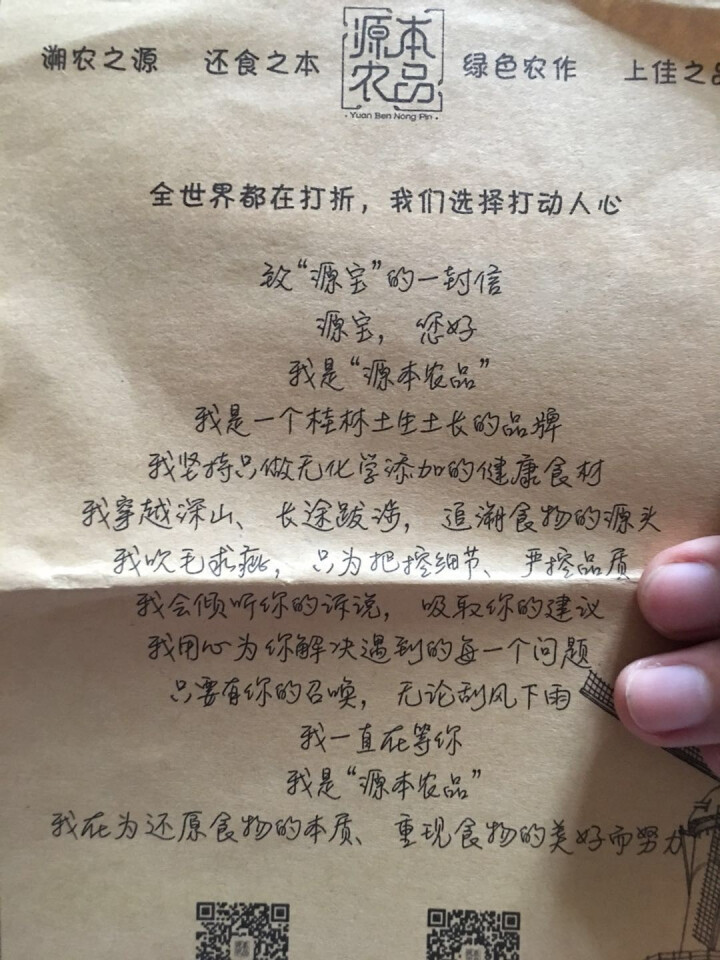 溯农之源 还食之本 源本农品 绿色农作 上佳之品
· Yuan Ben Nong Pin ·
全世界都在打折，我们选择打动人心
致“源宝”的一封信
源宝，您好
我是“源本农品”
我是一个桂林土生土长的品牌
我坚持只做无化学添加的健康食材
我穿越深山、长途跋涉，追溯食物的源头
我吹毛求疵，只为把控细节、严控品质
我会倾听你的诉说，吸取你的建议
我用心为你解决遇到的每一个问题
只要有你的召唤，无论刮风下雨
我一直在等你
我是“源本农品”
我在为还原食物的本质、重现食物的美好而努力